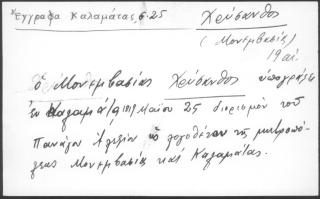 Έγγραφα Καλαμάτας 6.25
Χρύσανθος
(Μονεμβασίας)
19 αι.
ὁ Μονεμβασίας Χρύσανθος ὑπογράφει
ἐν Καλαμᾷ Μαΐου 25 διορισμόν τοῦ
Πανάγου Ἀλεξίου ὡς λογοθέτου τῆς μητροπό-
λεως Μονεμβασίας καί Καλαμάτας.